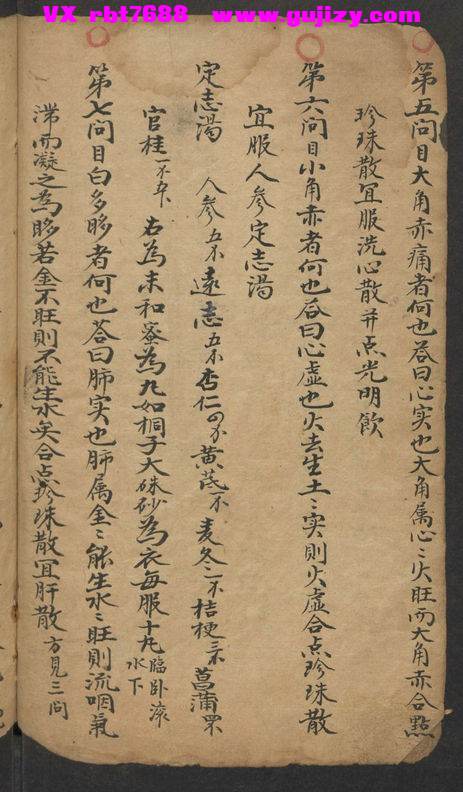 VX rbt7688 www.gujizy.com
第五问目大角赤痛者何也答曰心实也大角属心〻火旺而大角赤合點
珍珠散宜服洗心散并点光明飲
第六问目小角赤者何也答曰心虚也火去生土〻实則火虚合点珍珠散
宜服人参定志湯
定志湯 人参五不 遠志五不 杏仁四分 黄芪一不 麦冬二不 桔梗三不 菖蒲
官桂一不 右為末和蜜為丸如桐子大硃砂為衣每服十丸臨卧滚水下
第七问目白多眵者何也答曰肺实也肺属金〻能生水〻旺則流咽氣
滞而凝之為眵若金不旺則不能生水矣合点珍珠散宜肝散方見三问